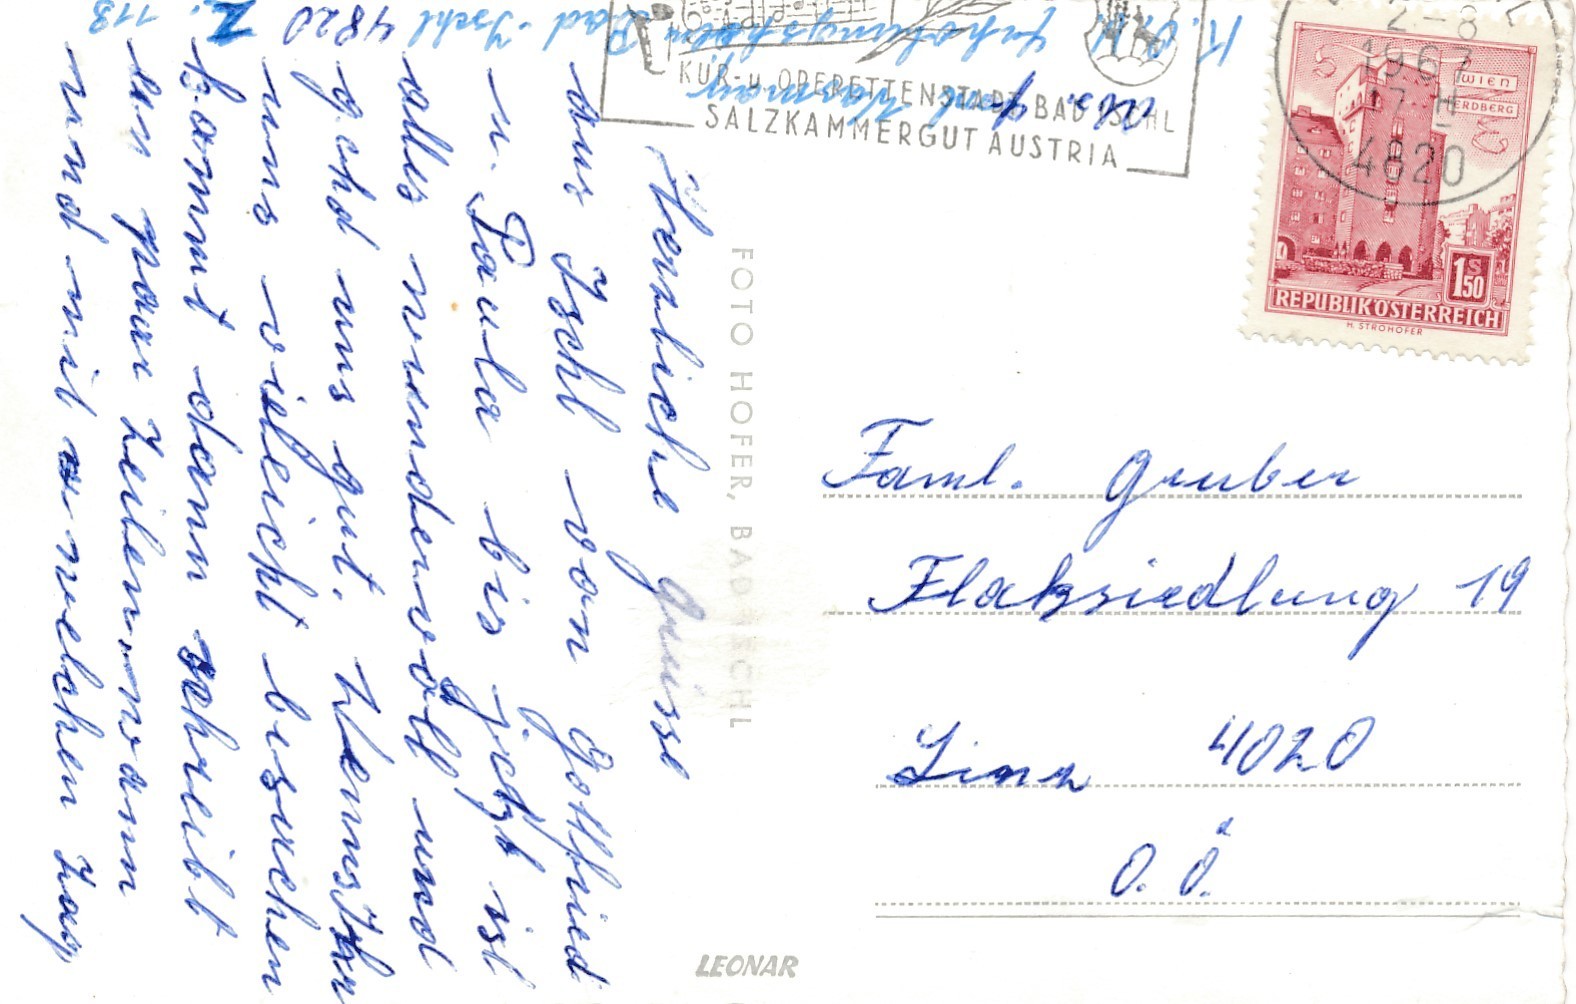 Herzliche Grüsse
aus Ischl von Gottfried
u. Paula bis jetzt ist
alles wundervoll und
gehd uns gut. Wenn Ihr
uns vieleicht besuchen
kommt dann schreibt
ein paar Zeilen, wann
und mit welchen Zug
Bad-Ischl 4820 Z. 113
KUR- u. OPERETTENSTADT BAD ISCHL
SALZKAMMERGUT AUSTRIA
2-8
1967
17 H
4820
WIEN
ERDBERG
1 S 50
REPUBLIK ÖSTERREICH
H. STROHOFER
FOTO HOFER, BAD ISCHL
Faml. Gruber
Flaksiedlung 19
Linz 4020
O.Ö.
LEONAR